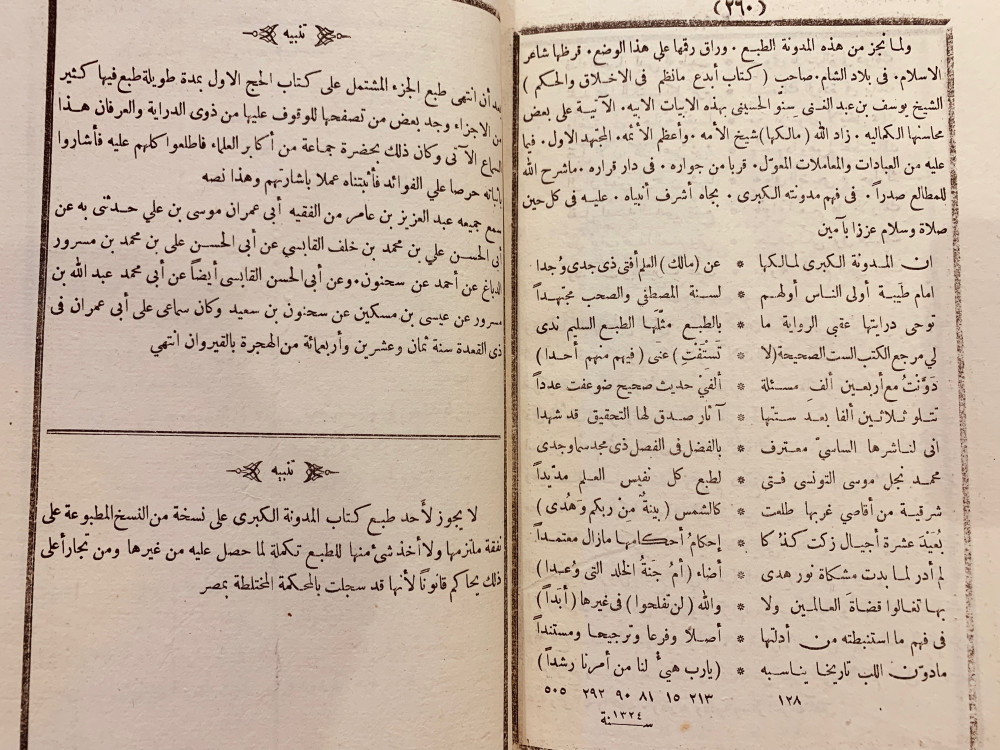 (٣٦٠)
ولما نجز من هذه المدونة الطبع . وراق رقها علي هذا الوضع . قرظها شاعر
الاسلام . فى بلاد الشام . صاحب ( كتاب أبدع مانظم فى الاخلاق والحكم )
الشيخ يوسف بن عبد الغنى سنو الحسيني بهذه الابيات الابيه . الآتية على بعض
محاسنها الكماليه . زاد الله ( مالكها ) شيخ الأمه . وأعظم الأئمه . المجتهد الاول . فيما
عليه من العبادات والمعاملات المعول . قربا من جواره . فى دار قراره . ماشرح الله
للمطالع صدراً . فى فهم مدونته الكبرى . بجاه أشرف أنبياه . عليه فى كل حين
صلاة وسلام عززا بآمين
ان المدونة الكبرى لمالكها * عن ( مالك ) العلم أفتى ذى جدى وجدا
امام طَيبة أولى الناس أولهم * لسنة المصطفى والصحب مجتهداً
توحى درايتها عقبى الرواية ما * بالطبع مثلها الطبع السليم ندى
لي مرجع الكتب الست الصحيحة ( لا * تَستَفتِ ) عنى ( فيهم منهم أحدا )
دَوَّنتُ مع أربعين ألف مسئلة * ألفَيْ حديث صحيح ضوعفت عدداً
تتلو ثلاثين ألفا بعد ستتها * آثار صدق لها التحقيق قد شهدا
انى لناشرها الساسيّ معترف * بالفضل فى الفصل ذى مجد سما وجدى
محمد نجل موسى التونسى فتى * لطبع كل نفيس العلم مدّ يداً
شرقية من أقاصي غربها طلعت * كالشمس ( بينةٌ مِنْ ربكم وَهُدى )
بُعَيْدَ عشرة أجيال زكت كذُكا * إحكامُ أحكامها مازال معتمداً
لم أدر لما بدت مشكاة نور هدى * أضاء ( أمُ جنةُ الخلد التى وُعدا )
بها تغالوا قضاةَ العالمين ولا * والله ( لن تفلحوا ) فى غيرها ( أبداً )
فى فهم ما استنبطته من أدلتها * أصلا وفرعا وترجيحا ومستنداً
مادوّن اللب تاريخا يناسبه * ( يارب هيئ لنا من أمرنا رشداً )
١٢٨ ٢١٣ ١٥ ٨١ ٩٠ ٢٩٢ ٥٠٥
سنة ١٣٢٤
تنبيه
بعد أن انتهى طبع الجزء المشتمل على كتاب الحج الاول بمدة طويلة طبع فيها كثير
من الاجزاء وجد بعض من تصفحها للوقوف عليها من ذوى الدراية والعرفان هذا
السماع الآتى وكان ذلك بحضرة جماعة من أكابر العلماء فاطلعوا كلهم عليه فأشاروا
باثباته حرصا علي الفوائد فأثبتناه عملا باشارتهم وهذا نصه
سمع جميعه عبد العزيز بن عامر من الفقيه أبى عمران موسى بن علي حدثنى به عن
أبى الحسن علي بن محمد بن خلف القابسي عن أبى الحسن على بن محمد بن مسرور
الدباغ عن أحمد عن سحنون . وعن أبى الحسن القابسى أيضاً عن أبى محمد عبد الله بن
مسرور عن عيسى بن مسكين عن سحنون بن سعيد وكان سماعى على أبى عمران فى
ذى القعدة سنة ثمان وعشرين وأربعمائة من الهجرة بالقيروان انتهي
تنبيه
لا يجوز لأحد طبع كتاب المدونة الكبرى على نسخة من النسخ المطبوعة على
نفقة ملتزمها ولا أخذ شئ منها للطبع تكملة لما حصل عليه من غيرها ومن تجارأ على
ذلك يحاكم قانونًا لأنها قد سجلت بالمحكمة المختلطة بمصر